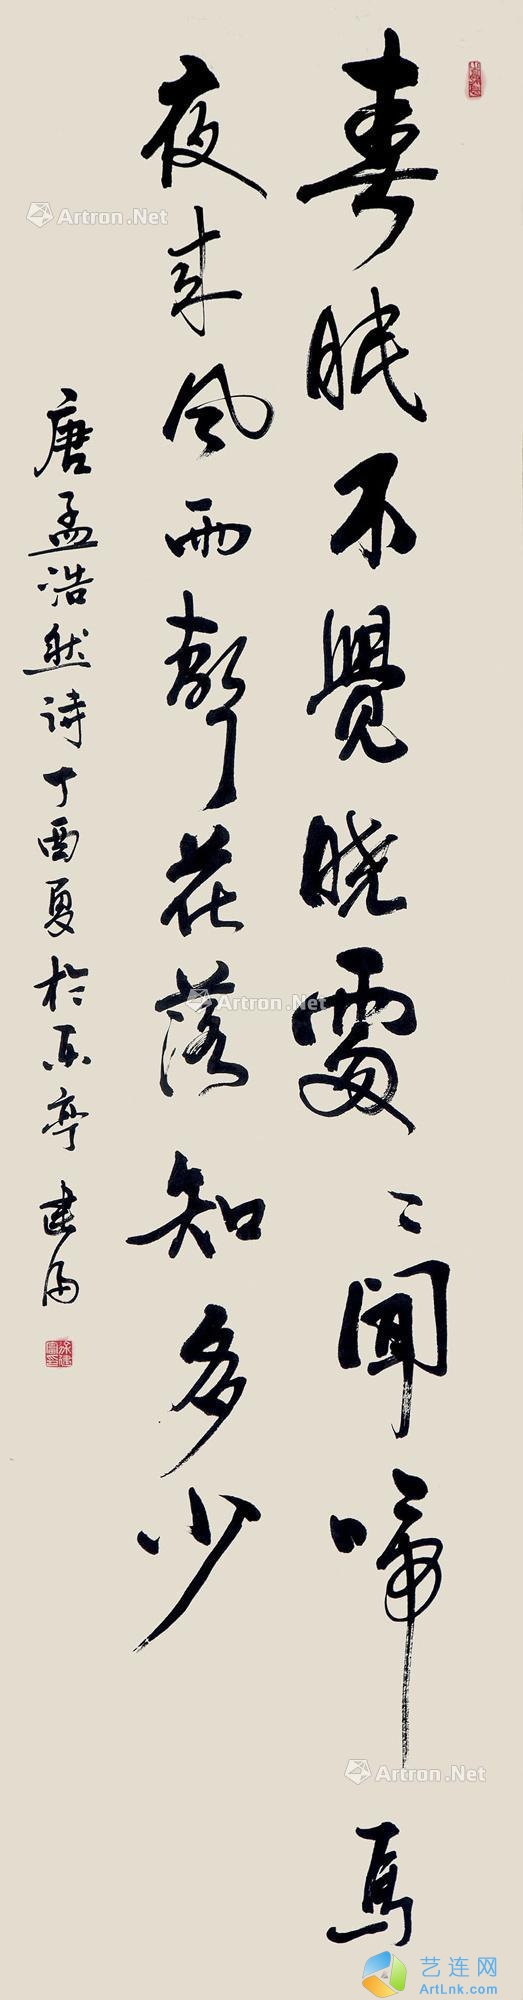 春眠不覺曉處〻聞啼鳥
夜来風雨聲花落知多少
唐孟浩然诗丁酉夏於禾亭建富
Artron.Net
Artron.Net
Artron.Net
艺连网
ArtLnk.com